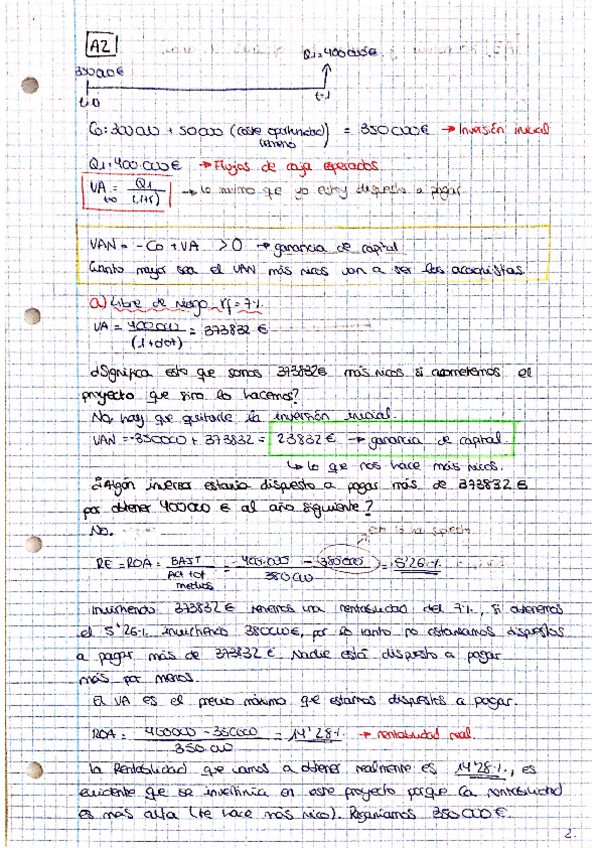 A2
Q1=400.000€
350000€
t=0
t=1
Co: 300000 + 50000 (coste oportunidad terreno) = 350000€ → Inversión inicial
Q1=400.000€ → Flujos de caja esperados
VA t=0 = Q1 / (1+r) → lo máximo que yo estoy dispuesto a pagar
VAN = -Co + VA > 0 → ganancia de capital
Cuanto mayor sea el VAN más ricos van a ser los accionistas
a) Libre de riesgo rf = 7%
VA = 400000 / (1+0'07) = 373832 €
¿Significa esto que somos 373832€ más ricos si acometemos el
proyecto que si no lo hacemos?
No, hay que quitarle la inversión inicial.
VAN = -350000 + 373832 = 23832 € → ganancia de capital
↳ lo que nos hace más ricos.
¿Algún inversor estaría dispuesto a pagar más de 373832 €
por obtener 400000 € al año siguiente?
No.
RE = ROA = BAIT / Act tot medios = 400.000 - 380000 / 380000 = 5'26%
Invirtiendo 373832 € tenemos una rentabilidad del 7%, si obtenemos
el 5'26% invirtiendo 380000€, por lo tanto no estaríamos dispuestos
a pagar más de 373832 €. Nadie está dispuesto a pagar
más por menos.
El VA es el precio máximo que estamos dispuestos a pagar.
ROA = 400000 - 350000 / 350000 = 14'28% → rentabilidad real
la Rentabilidad que vamos a obtener realmente es 14'28%, es
evidente que se invertiría en este proyecto porque la rentabilidad
es más alta (te hace más rico). Pagaríamos 350000€.
2.